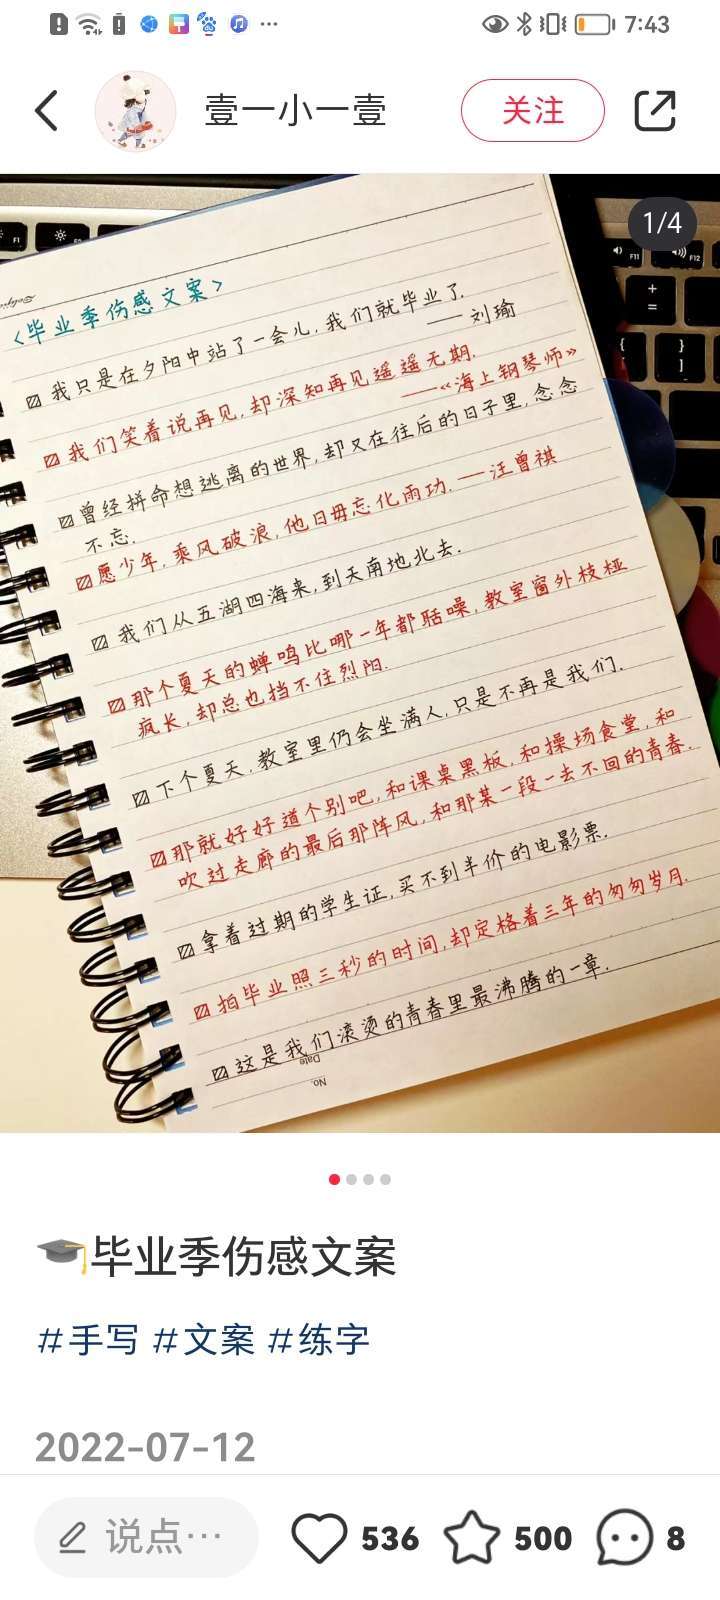 7:43
壹一小一壹
关注
1/4
F1
F11
F12
<毕业季伤感文案>
我只是在夕阳中站了一会儿,我们就毕业了.
—— 刘瑜
我们笑着说再见,却深知再见遥遥无期.
——《海上钢琴师》
曾经拼命想逃离的世界,却又在往后的日子里,念念
不忘.
愿少年,乘风破浪,他日毋忘化雨功.——汪曾祺
我们从五湖四海来,到天南地北去.
那个夏天的蝉鸣比哪一年都聒噪,教室窗外枝桠
疯长,却总也挡不住烈阳.
下个夏天,教室里仍会坐满人,只是不再是我们.
那就好好道个别吧,和课桌黑板,和操场食堂,和
吹过走廊的最后那阵风,和那某一段一去不回的青春.
拿着过期的学生证,买不到半价的电影票.
拍毕业照三秒的时间,却定格着三年的匆匆岁月.
这是我们滚烫的青春里最沸腾的一章.
Date
No.
毕业季伤感文案
#手写 #文案 #练字
2022-07-12
说点…
536
500
8